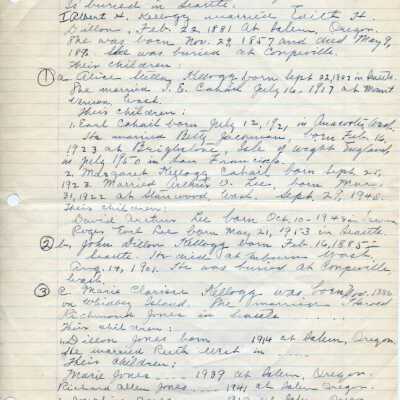 is buried in Seattle.
I Albert H. Kellogg married Edith H.
Dillon, Feb. 22, 1881 at Salem, Oregon.
She was born Nov. 29, 1857 and died May 9,
She was buried at Coupeville.
Their children:
① a. Alice Kellogg born Sept 22, in Seattle.
She married J. E. Cahail July 16, 1917 at Mount
Vernon Wash.
Their children:
1. Earl Cahail born July 12, 1921, in Anacortes, Wash.
He married Betty Jacquman, born Feb. 16,
1923 at Brighstone, Isle of Wight England
in July 1950 in San Francisco.
2. Margaret Kellogg Cahail born Sept. 25,
1923 Married Arthur O. Lee, born Mar.
31, 1922 at Stanwood, Wash. Sept. 27, 1940.
Their children:
David Arthur Lee born Oct. 10 - 1948 in
Roger Earl Lee born May 21, 1953 in Seattle.
② b. John Dillon Kellogg born Feb. 16, 1885 -
Seattle. He died at Auburn Wash.
Aug. 19, 1901. He was buried at Coupeville
Wash.
③ C Marie Clarisse Kellogg was born Nov.
on Whidbey Island. She married Harold
Richmond Jones in Seattle ....
Their children:
Dillon Jones born ... 1914 at Salem, Oregon.
He married Ruth West in ....
Their children:
Marie Jones .... 1939 at Salem, Oregon.
Richard Allen Jones .... 1941 at Salem Oregon.